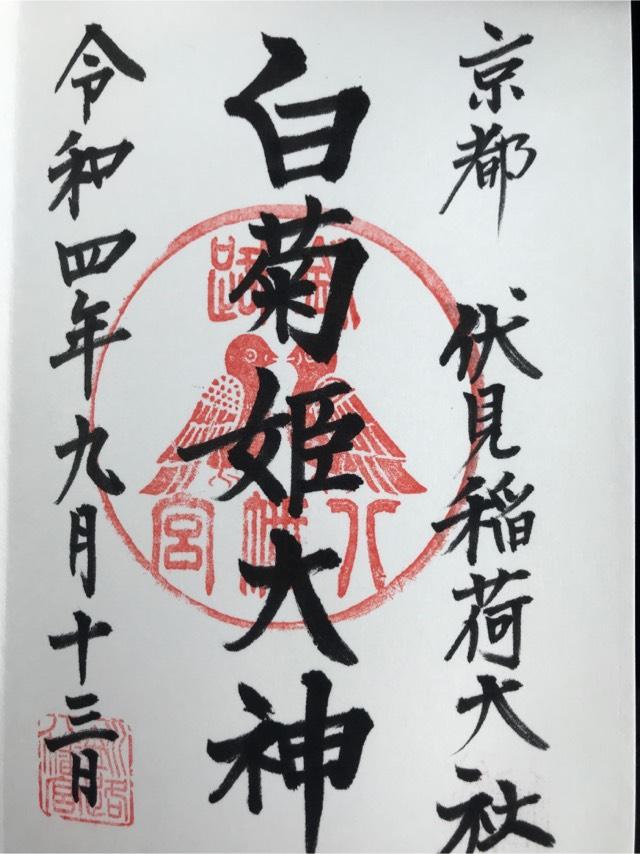 京都 伏見稲荷大社
白菊姫大神
令和四年九月十三日
釧路
八幡宮